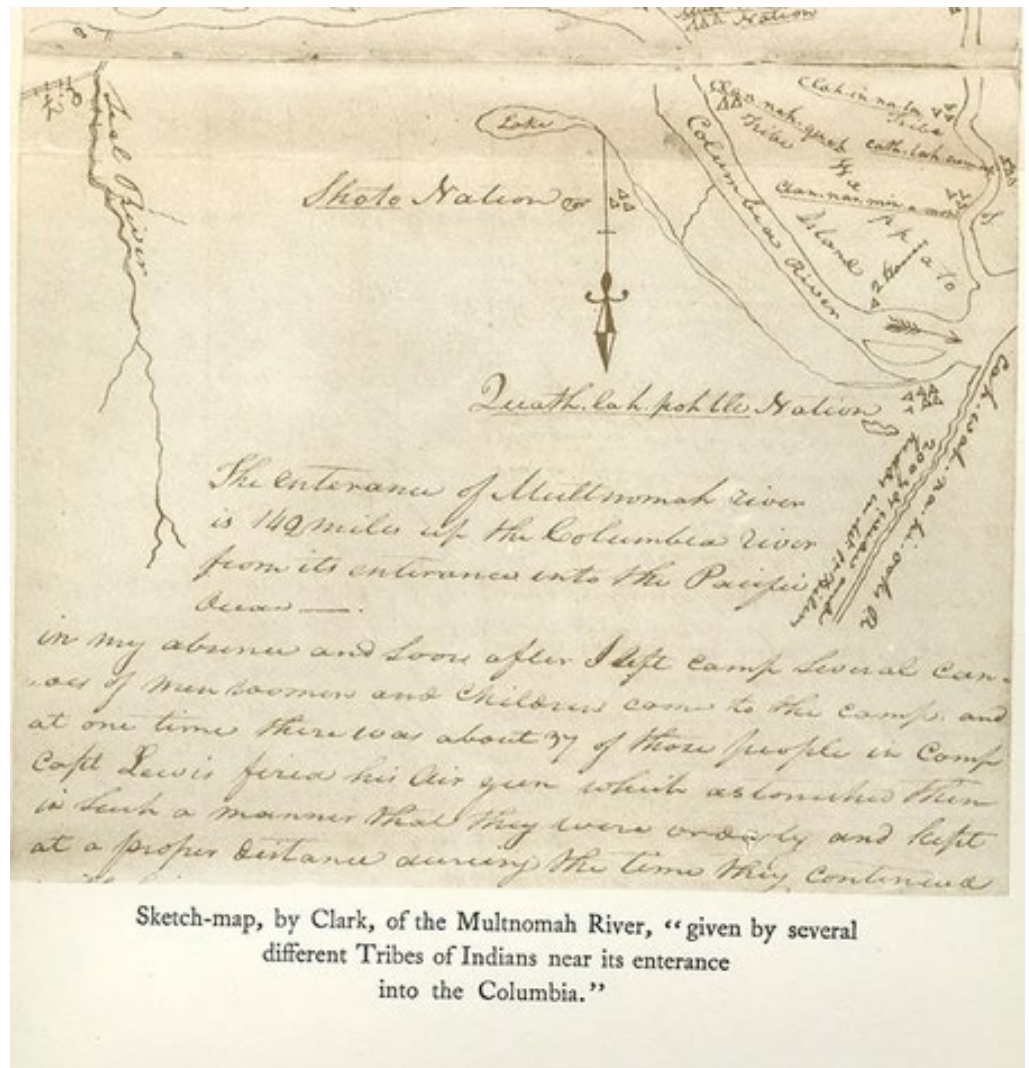 Nation
Clah-in-na-ta
Tribe
Clan-nah-quah
Tribe
Cath-lah-com-ah
Lake
Seal River
Columbia River
Shoto Nation
Clan-nar-min-a-mon
Wap pa to
Island
2 Houses
Quath-lah-poh-tle Nation
Cah-wah-na-hi-ooks R
200 yds
The enterance of Multnomah river
is 142 miles up the Columbia river
from its enterance into the Pacific
Ocean —.
in my absence and soon after I left camp several can-
-oes of men women and Children came to the camp. and
at one time there was about 37 of those people in Camp
Capt Lewis fired his Air gun which astonished them
in such a manner that they were orderly and kept
at a proper distance dureing the time they continued
Sketch-map, by Clark, of the Multnomah River, “given by several
different Tribes of Indians near its enterance
into the Columbia.”